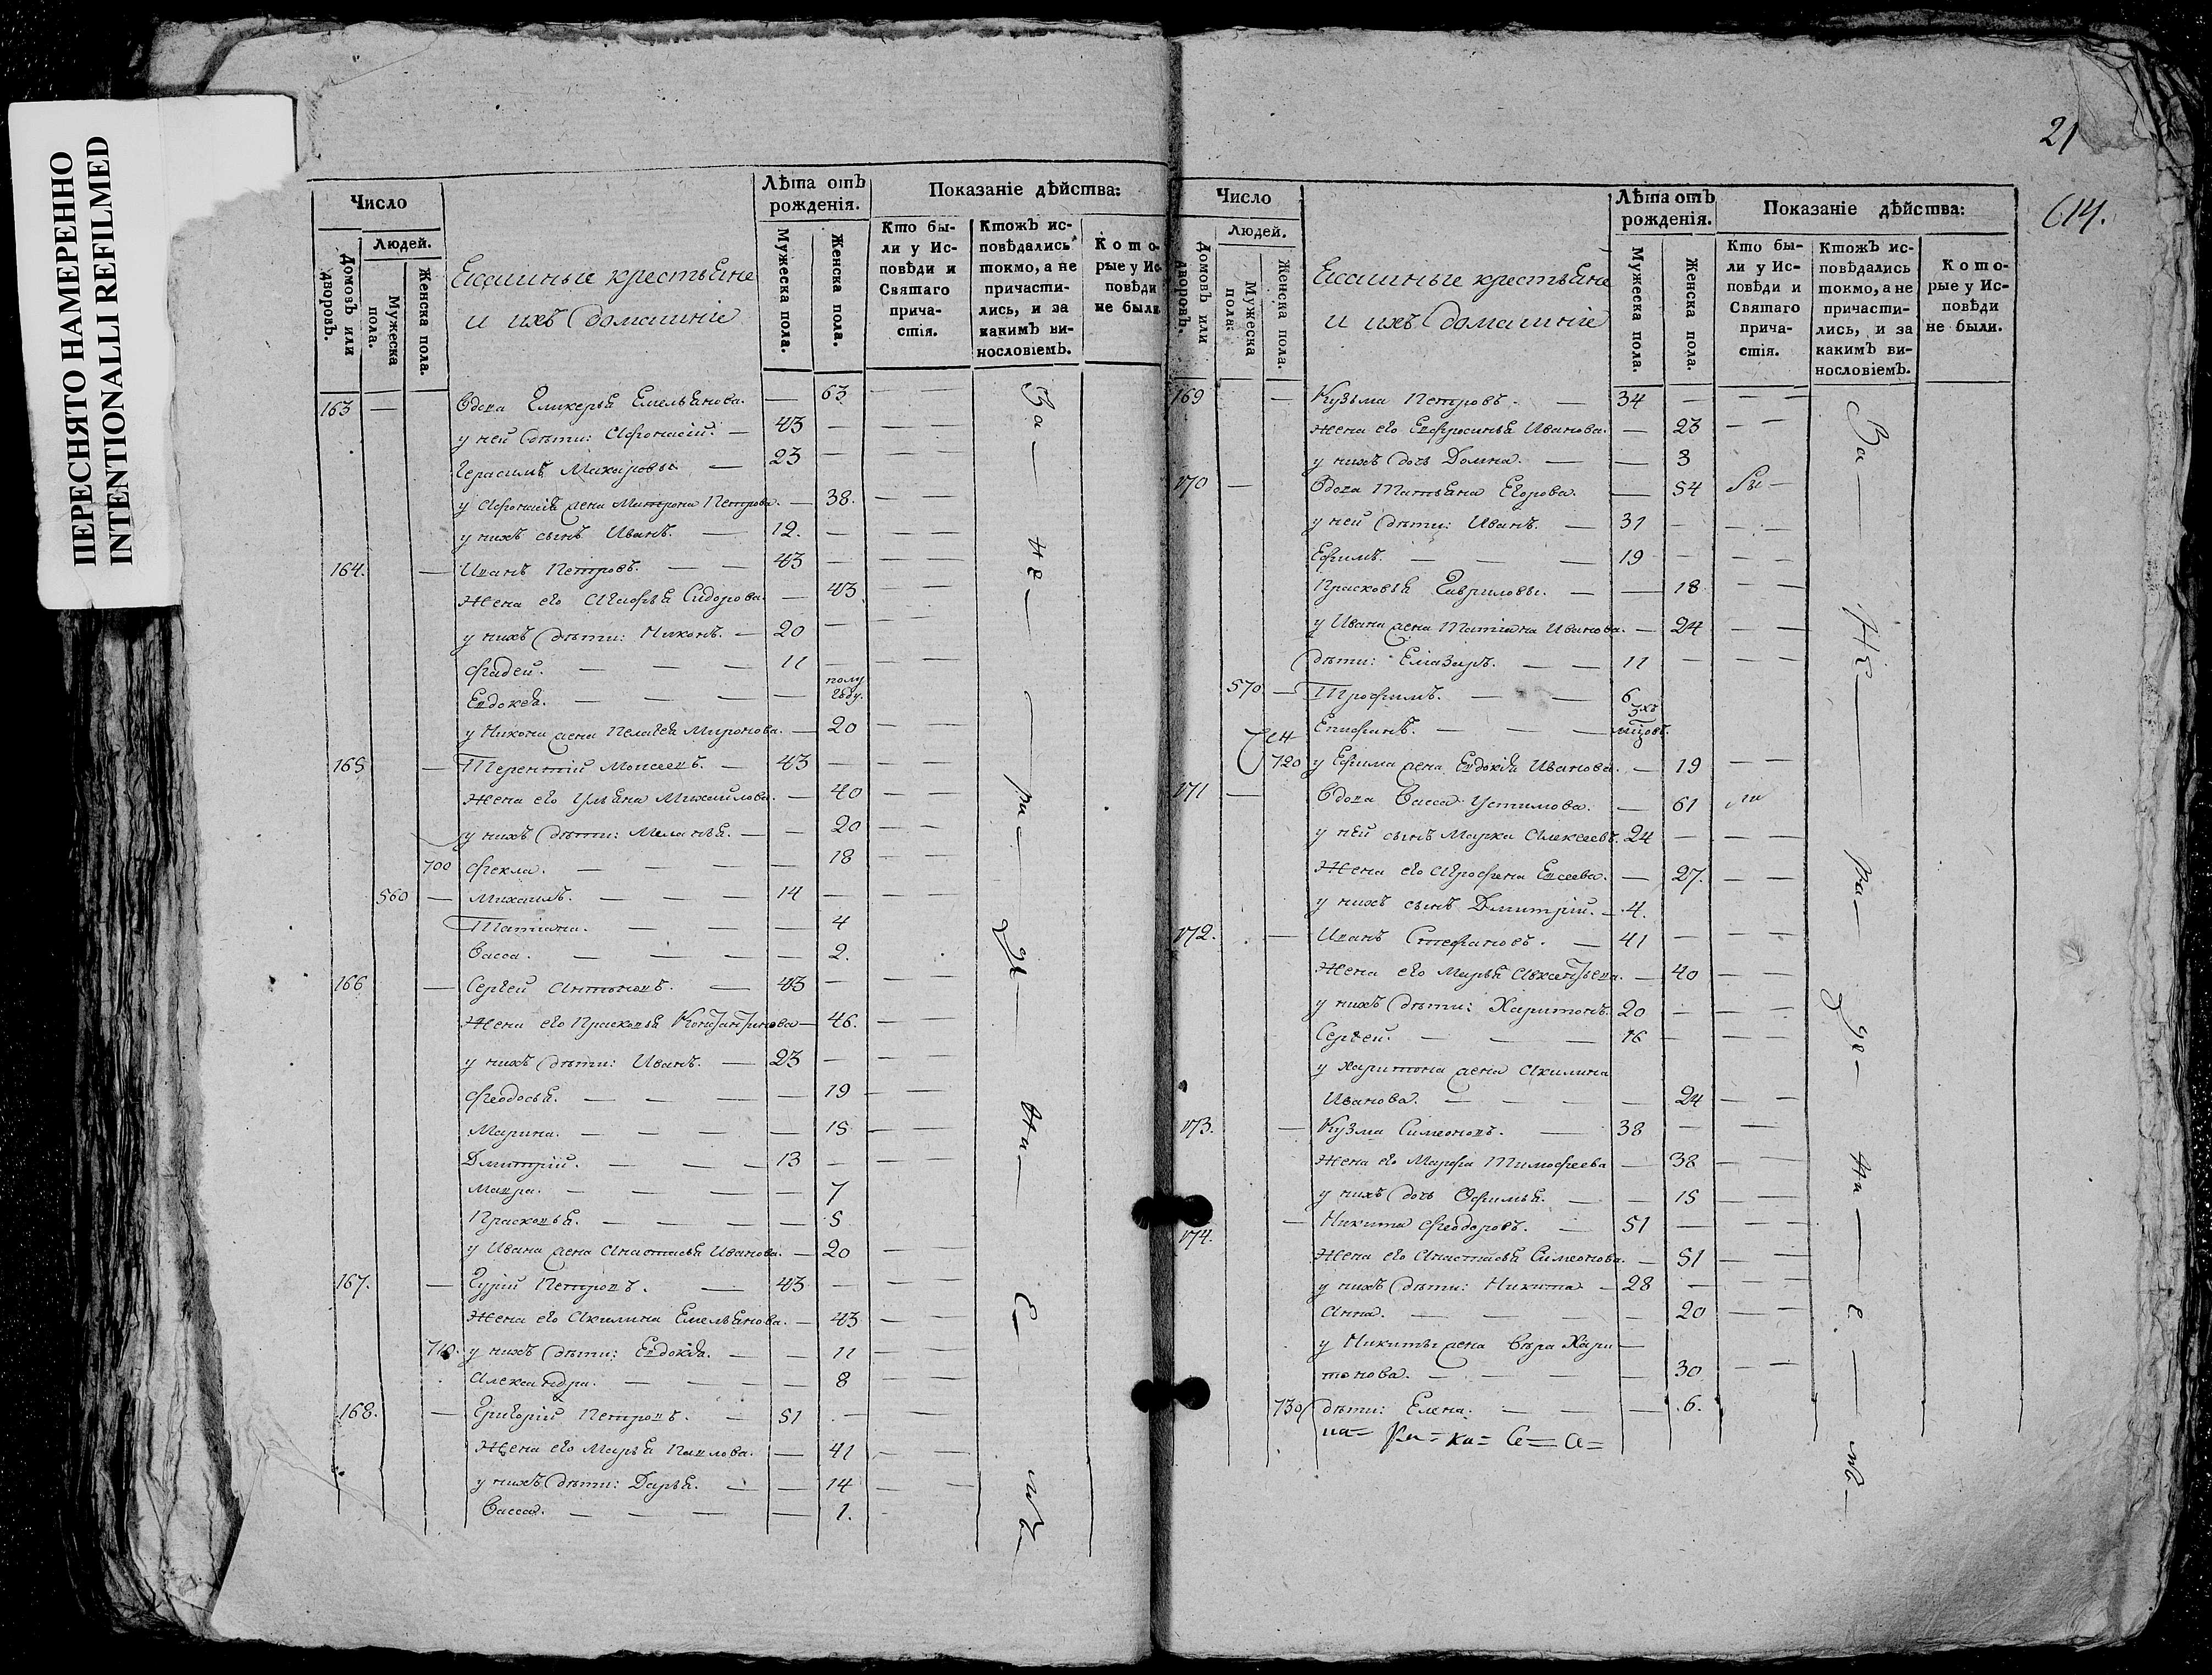 ПЕРЕСНЯТО НАМЕРЕННО
INTENTIONALLI REFILMED
Число
Людей.
Домовъ или дворовъ.
Мужеска пола.
Женска пола.
крестьяне
и ихъ домашніе
Лѣта отъ рожденія.
Мужеска пола.
Женска пола.
Показаніе дѣйства:
Кто бы-
ли у Ис-
повѣди и
Святаго
прича-
стія.
Ктожъ ис-
повѣдались
токмо, а не
причасти-
лись, и за
какимъ ви-
нословіемъ.
Кото-
рые у Ис-
повѣди
не были
163 — Вдова Гликерья Емельянова. — 63
у ней дѣти: Афонасій. — 43
Герасимъ Макаровы. — 23
у Афонасія жена Матрона Петрова. — 38.
у нихъ сынъ Иванъ. — 12.
164. — Иванъ Петровъ. — 43
Жена его Агафья Сидорова. — 43
у нихъ дѣти: Никонъ. — 20
Фадей. — 11
Евдокея. — полу году.
у Никона жена Пелагея Миронова. — 20
165 — Терентій Моисеевъ. — 43
Жена его Ульяна Михайлова. — 40
у нихъ дѣти: Меланья. — 20
700 Фекла. — 18
560 — Михаилъ. — 14
Татіана. — 4
Васса. — 2.
166 — Сергей Антоновъ. — 43
Жена его Прасковья Константинова — 46.
у нихъ дѣти: Иванъ. — 23
Феодосья. — 19
Марина. — 15
Дмитрій. — 13
Мавра. — 7
Прасковья. — 5
у Ивана жена Анастасья Иванова. — 20
167. — Гурій Петровъ. — 43
Жена его Акилина Емельянова. — 43
710. у нихъ дѣти: Евдокія. — 11
Александра. — 8
168. — Григорій Петровъ. — 51
Жена его Марья Павлова. — 41
у нихъ дѣти: Дарья. — 14
Васса. — 1.
За — не — ра — де — ни — е — мъ
21
614.
Число
Людей.
Домовъ или дворовъ.
Мужеска пола.
Женска пола.
крестьяне
и ихъ домашніе
Лѣта отъ рожденія.
Мужеска пола.
Женска пола.
Показаніе дѣйства:
Кто бы-
ли у Ис-
повѣди и
Святаго
прича-
стія.
Ктожъ ис-
повѣдались
токмо, а не
причасти-
лись, и за
какимъ ви-
нословіемъ.
Кото-
рые у Ис-
повѣди
не были.
169 — Кузьма Петровъ. — 34
Жена его Евфросинья Иванова. — 23
у нихъ дочь Домна. — 3
170 — Вдова Татьяна Егорова. — 54 бы —
у ней дѣти: Иванъ. — 31
Ефимъ. — 19
Прасковья Гавриловы. — 18
у Ивана жена Татіана Иванова. — 24
дѣти: Елиазаръ. — 11
570 — Трофимъ. — 6
Епифанъ. — 3хъ мцовъ.
720 у Ефима жена Евдокія Иванова. — 19
171 — Вдова Васса Устимова. — 61 ли
у ней сынъ Марка Алексеевъ. 24
Жена его Агрофена Евсеева. — 27.
у нихъ сынъ Дмитрій. — 4.
172. — Иванъ Стефановъ. — 41
Жена его Марья — 40
у нихъ дѣти: Харитонъ. 20
Сергей. — 16
у Харитона жена Акилина
Иванова. — 24
173. — Кузма Симеоновъ. — 38
Жена его Марфа Тимофеева — 38
у нихъ дочь Офимья. — 15
174. — Никита Феодоровъ. — 51
Жена его Анастасья Симеонова. — 51
у нихъ дѣти: Никита — 28
Анна. — 20
у Никиты жена Вѣра Хари-
тонова. — 30
730 дѣти: Елена. — 6.
За — не — ра — де — ни — е. — мъ —